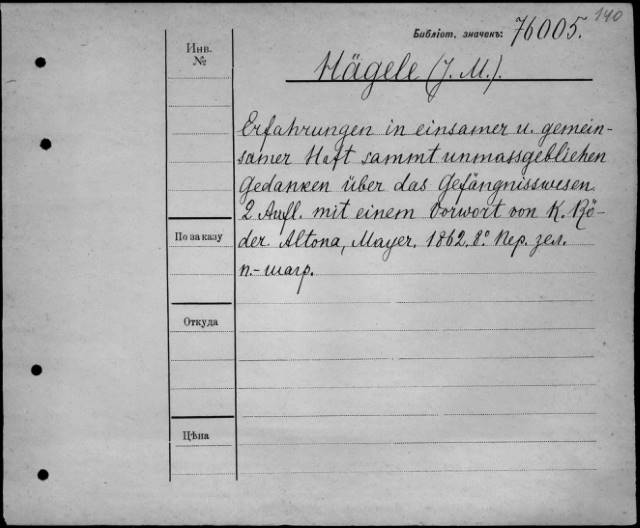 140
Библіот. значекъ: 76005.
Инв.
№
Hägele (J. M.).
Erfahrungen in einsamer u. gemein-
samer Haft sammt unmassgeblichen
Gedanken über das Gefängnisswesen.
2 Aufl. mit einem Vorwort von K. Rö-
der. Altona, Mayer. 1862. 8º. Пер. зел.
п.-шагр.
По заказу
Откуда
Цѣна